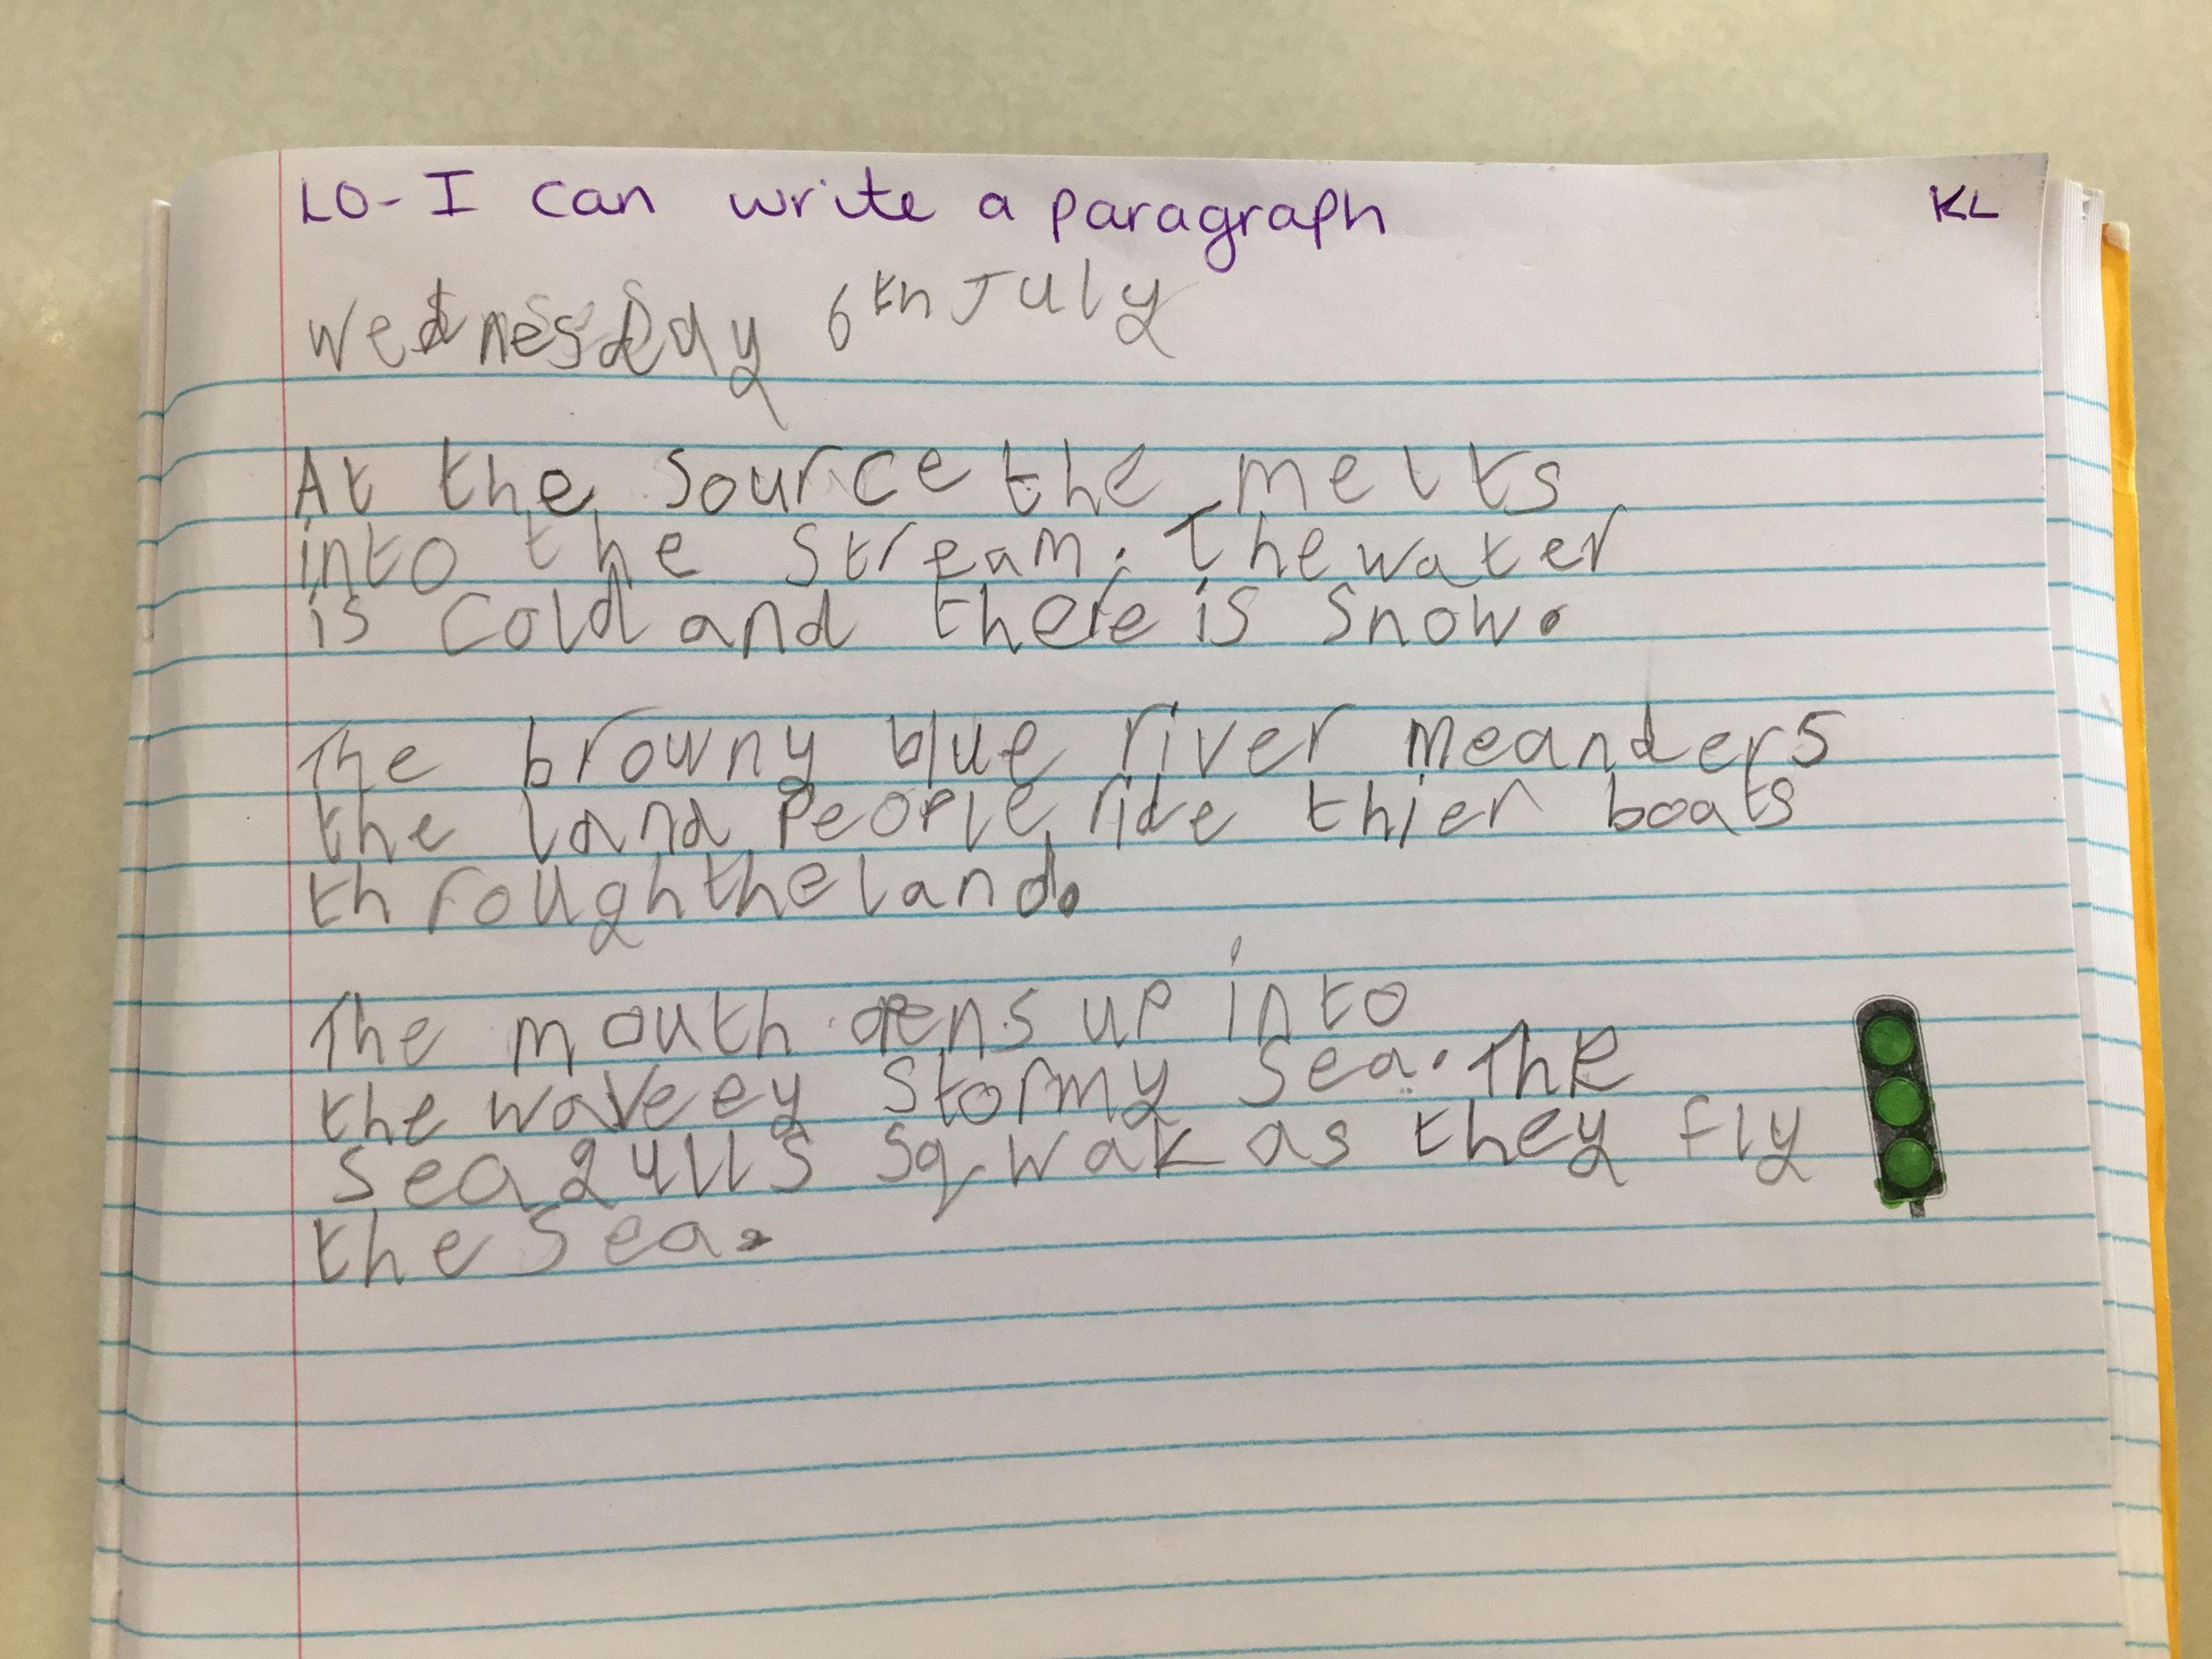 LO- I can write a paragraph KL
Wednesday 6th July
At the source the melts
into the stream. The water
is cold and there is snow.
The browny blue river meanders
the land people ride thier boats
through the land.
The mouth opens up into
the waveey stormy sea. The
sea gulls sqwak as they fly
the sea.